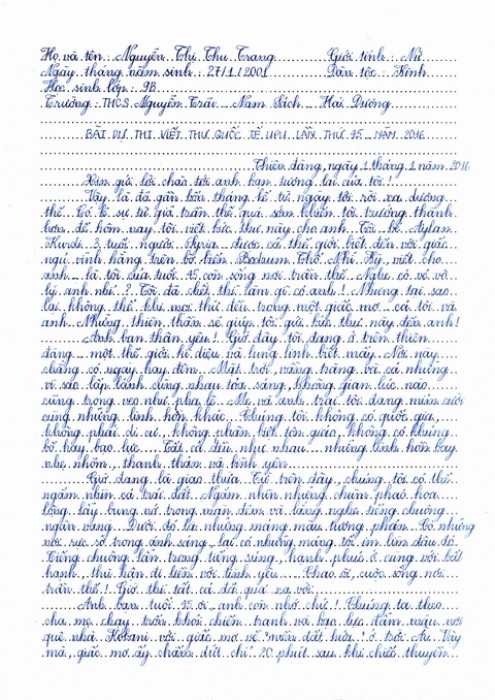 Họ và tên : Nguyễn Thị Thu Trang Giới tính : Nữ
Ngày tháng năm sinh : 27/1/2001 Dân tộc : Kinh
Học sinh lớp : 9B
Trường : THCS Nguyễn Trãi - Nam Sách - Hải Dương
BÀI DỰ THI VIẾT THƯ QUỐC TẾ UPU LẦN THỨ 45 - NĂM 2016
Thiên đàng, ngày 1 tháng 1 năm 2016
Xin gửi lời chào tới anh bạn tương lai của tôi!
Vậy là đã gần bốn tháng kể từ ngày tôi rời xa dương
thế. Có lẽ sự từ giã trần thế quá sớm khiến tôi trưởng thành
hơn để hôm nay tôi viết bức thư này cho anh. Tôi - bé Aylan
Kurdi 3 tuổi người Syria được cả thế giới biết đến với giấc
ngủ vĩnh hằng trên bờ biển Bodrum Thổ Nhĩ Kỳ, viết cho
anh - là tôi của tuổi 45 còn sống nơi trần thế. Nghe có vẻ vô
lý anh nhỉ? Tôi đã chết thì làm gì có anh! Nhưng tại sao
lại không thể khi mọi thứ đều trong một giấc mơ - cả tôi và
anh. Những thiên thần sẽ giúp tôi gửi bức thư này đến anh!
Anh bạn thân yêu! Giờ đây tôi đang ở trên thiên
đàng - một thế giới kì diệu và lung linh biết mấy. Nơi này
chẳng có ngày hay đêm. Mặt trời, vầng trăng và cả những
vì sao lấp lánh cùng nhau tỏa sáng, không gian lúc nào
cũng trong veo như pha lê. Mẹ và anh trai tôi đang mỉm cười
cùng những linh hồn khác. Chúng tôi không có quốc gia,
không phải di cư, không phân biệt tôn giáo, không có khủng
bố hay bạo lực. Tất cả đều như nhau - những linh hồn bay
nhẹ nhõm, thanh thản và bình yên.
Giờ đang là giao thừa. Từ trên đây, chúng tôi có thể
ngắm nhìn cả trái đất. Ngắm nhìn những chùm pháo hoa
lộng lẫy bung nở trong màn đêm và lắng nghe tiếng chuông
ngân vang. Dưới đó là những mảng màu tương phản. Có những
nơi rực rỡ trong ánh sáng, lại có những mảng tối im lìm đâu đó.
Tiếng chuông lẫn trong tiếng súng, hạnh phúc ở cùng với bất
hạnh, thù hận đi liền với tình yêu. Chao ôi, cuộc sống nơi
trần thế! Giờ thì tất cả đã quá xa vời.
Anh bạn tuổi 45 ơi, anh còn nhớ chứ! Chúng ta theo
cha mẹ chạy trốn khỏi chiến tranh và bạo lực đẫm máu nơi
quê nhà Kobani với giấc mơ về "miền đất hứa" ở trời Âu. Vậy
mà, giấc mơ ấy chấm dứt chỉ 20 phút sau khi chiếc thuyền